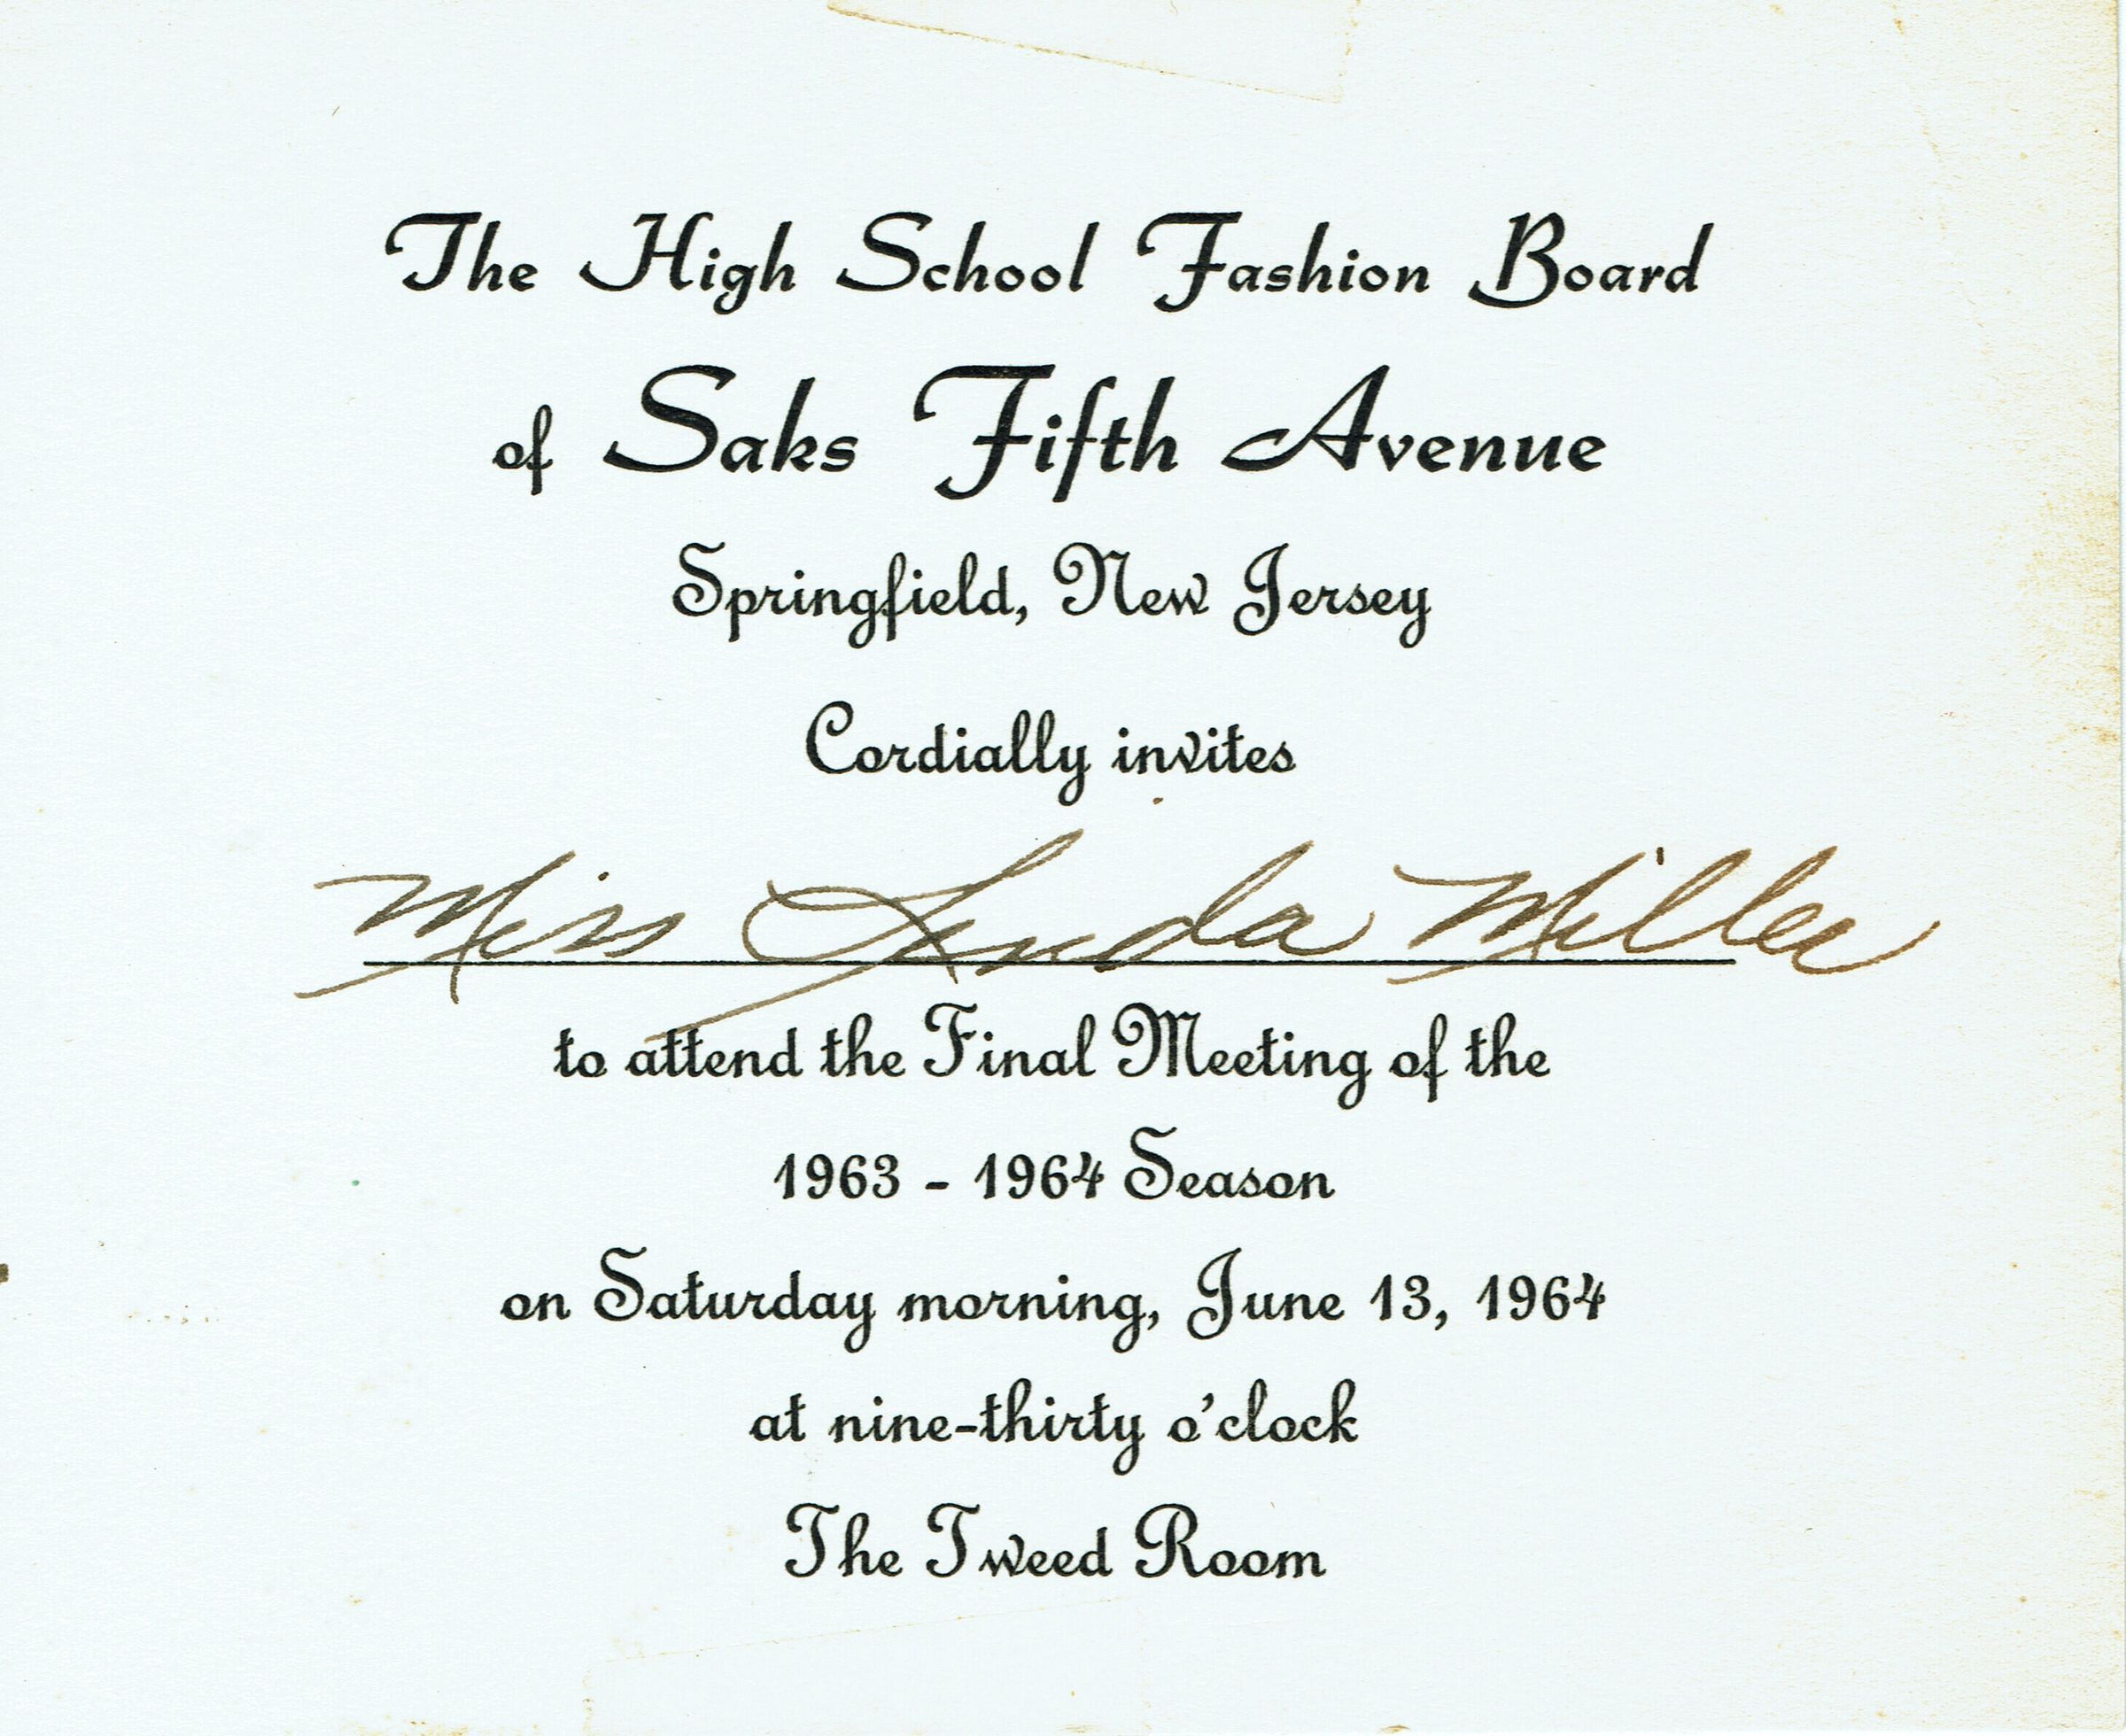 The High School Fashion Board
of Saks Fifth Avenue
Springfield, New Jersey
Cordially invites
Miss Linda Miller
to attend the Final Meeting of the
1963 - 1964 Season
on Saturday morning, June 13, 1964
at nine-thirty o'clock
The Tweed Room